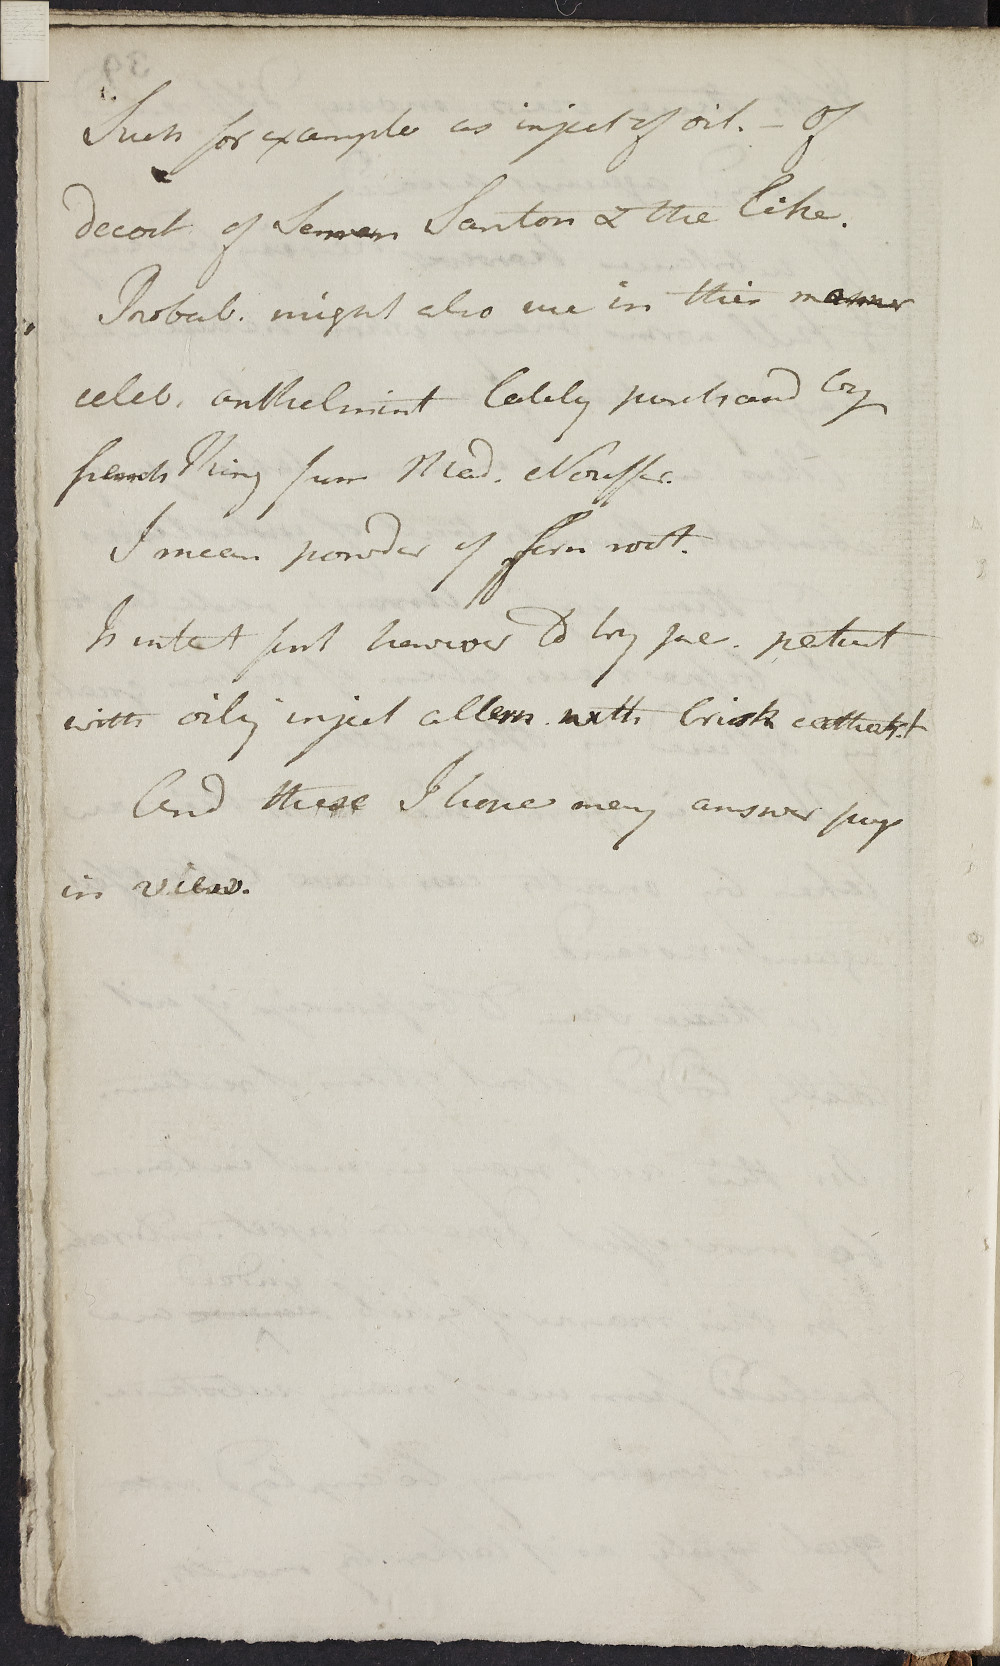 Such for example as inject of oil. – Of
decoct of Semen Santon & the like.
Probab. might also use in this manner
celeb. anthelmint lately purchasd by
french King from Mad. Nouffer.
I mean powder of fern root.
Is intent first however to try pre. patient
with oily inject altern. with brisk cathart
And these I hope may answer purp
in view.